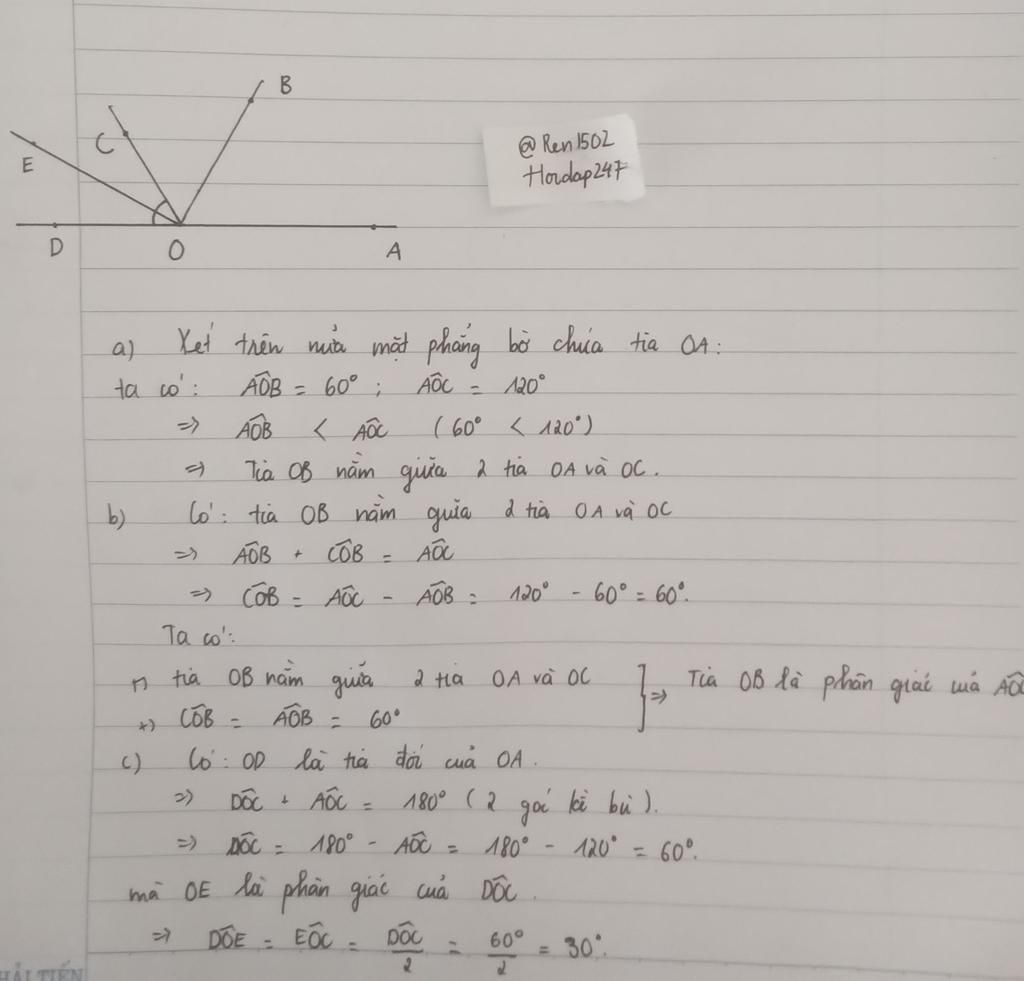 B
C
E
D
O
A
@Ren1502
Hoidap247
a) Xét trên nửa mặt phẳng bờ chứa tia OA:
ta có: AÔB = 60° ; AÔC = 120°
=> AÔB < AÔC (60° < 120°)
=> Tia OB nằm giữa 2 tia OA và OC.
b) Có: tia OB nằm giữa 2 tia OA và OC
=> AÔB + CÔB = AÔC
=> CÔB = AÔC - AÔB = 120° - 60° = 60°.
Ta có:
+) tia OB nằm giữa 2 tia OA và OC
+) CÔB = AÔB = 60°
=> Tia OB là phân giác của AÔC
c) Có: OD là tia đối của OA.
=> DÔC + AÔC = 180° (2 góc kề bù).
=> DÔC = 180° - AÔC = 180° - 120° = 60°.
mà OE là phân giác của DÔC.
=> DÔE = EÔC = DÔC/2 = 60°/2 = 30°.
HẢI TIẾN